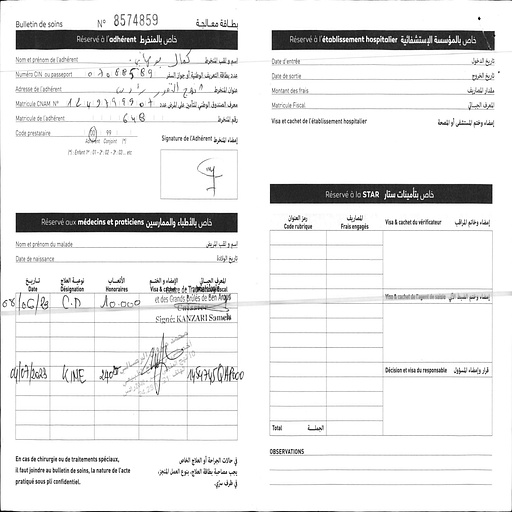 Bulletin de soins N° 8574859 بطاقة معالجة
Réservé à l'adhérent خاص بالمنخرط
Nom et prénom de l'adhérent كمال اسم و لقب المنخرط
Numéro CIN ou passeport 07068589 عدد بطاقة التعريف الوطنية أو جواز السفر
Adresse de l'adhérent نهج عنوان المنخرط
Matricule CNAM. N° معرف الصندوق الوطني للتأمين على المرض عدد
Matricule de l'adhérent 648 رقم المنخرط
Code prestataire 00 99
Adhérent Conjoint (*)
(*) : Enfant 1er : 01 - 2è : 02 - 3è : 03 ... etc
Signature de l'Adhérent إمضاء المنخرط
Réservé aux médecins et praticiens خاص بالأطباء والممارسين
Nom et prénom du malade اسم و لقب المريض
Date de naissance تاريخ الولادة
التاريخ توصية العلاج الأتعاب الإمضاء و الختم المعرف الجبائي
Date Désignation Honoraires Visa & cachet Matricule Fiscal
Centre de Traumatologie
et des Grands Brûlés de Ben Arous
06/06/23 C.D 10.000
Signé: KANZARI Sameh
04/07/2023 KINE
En cas de chirurgie ou de traitements spéciaux,
il faut joindre au bulletin de soins, la nature de l'acte
pratiqué sous pli confidentiel.
في حالات الجراحة أو العلاج الخاص
يجب مصاحبة بطاقة العلاج، بنوع العمل المنجز،
في ظرف سري.
Réservé à l'établissement hospitalier خاص بالمؤسسة الإستشفائية
Date d'entrée تاريخ الدخول
Date de sortie تاريخ الخروج
Montant des frais مقدار المصاريف
Matricule Fiscal المعرف الجبائي
Visa et cachet de l'établissement hospitalier إمضاء وختم المستشفى أو المصحة
Réservé à la STAR خاص بتأمينات ستار
رمز العنوان المصاريف
Code rubrique Frais engagés
Visa & cachet du vérificateur إمضاء وخاتم المراقب
Visa & cachet de l'agent de saisie
Décision et visa du responsable قرار وإمضاء المسؤول
Total الجملة
OBSERVATIONS